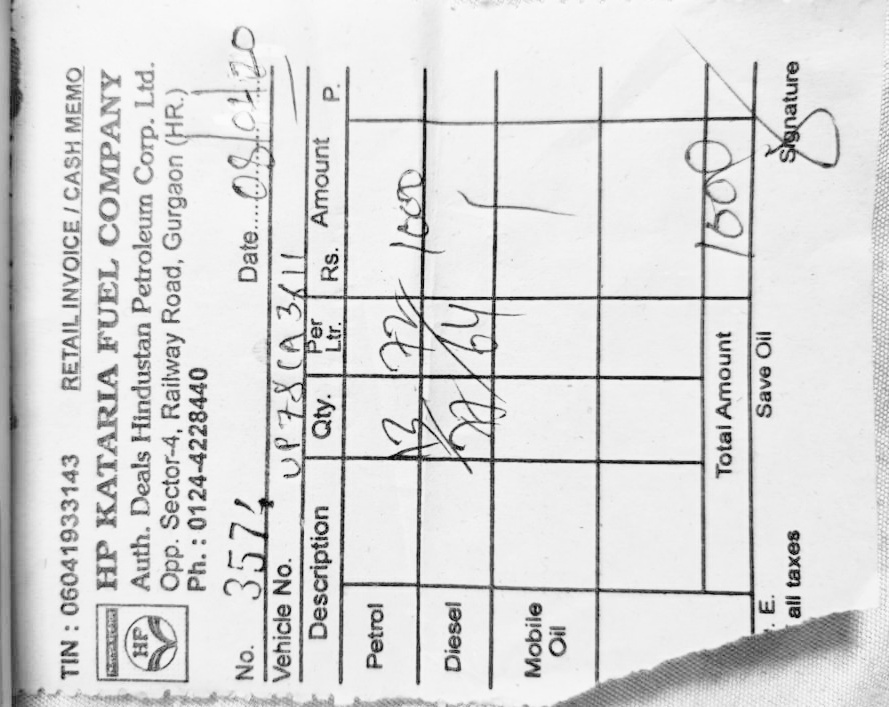 TIN : 06041933143 RETAIL INVOICE / CASH MEMO
HP KATARIA FUEL COMPANY
HP
Auth. Deals Hindustan Petroleum Corp. Ltd.
Opp. Sector-4, Railway Road, Gurgaon (HR.)
Ph. : 0124-4228440
No. 357 Date....08/01/20
Vehicle No. UP78CA3611
Description Qty. Per Ltr. Rs. Amount P.
Petrol 72 1500
Diesel 64
Mobile Oil
Total Amount 1500
. E. Save Oil
all taxes Signature